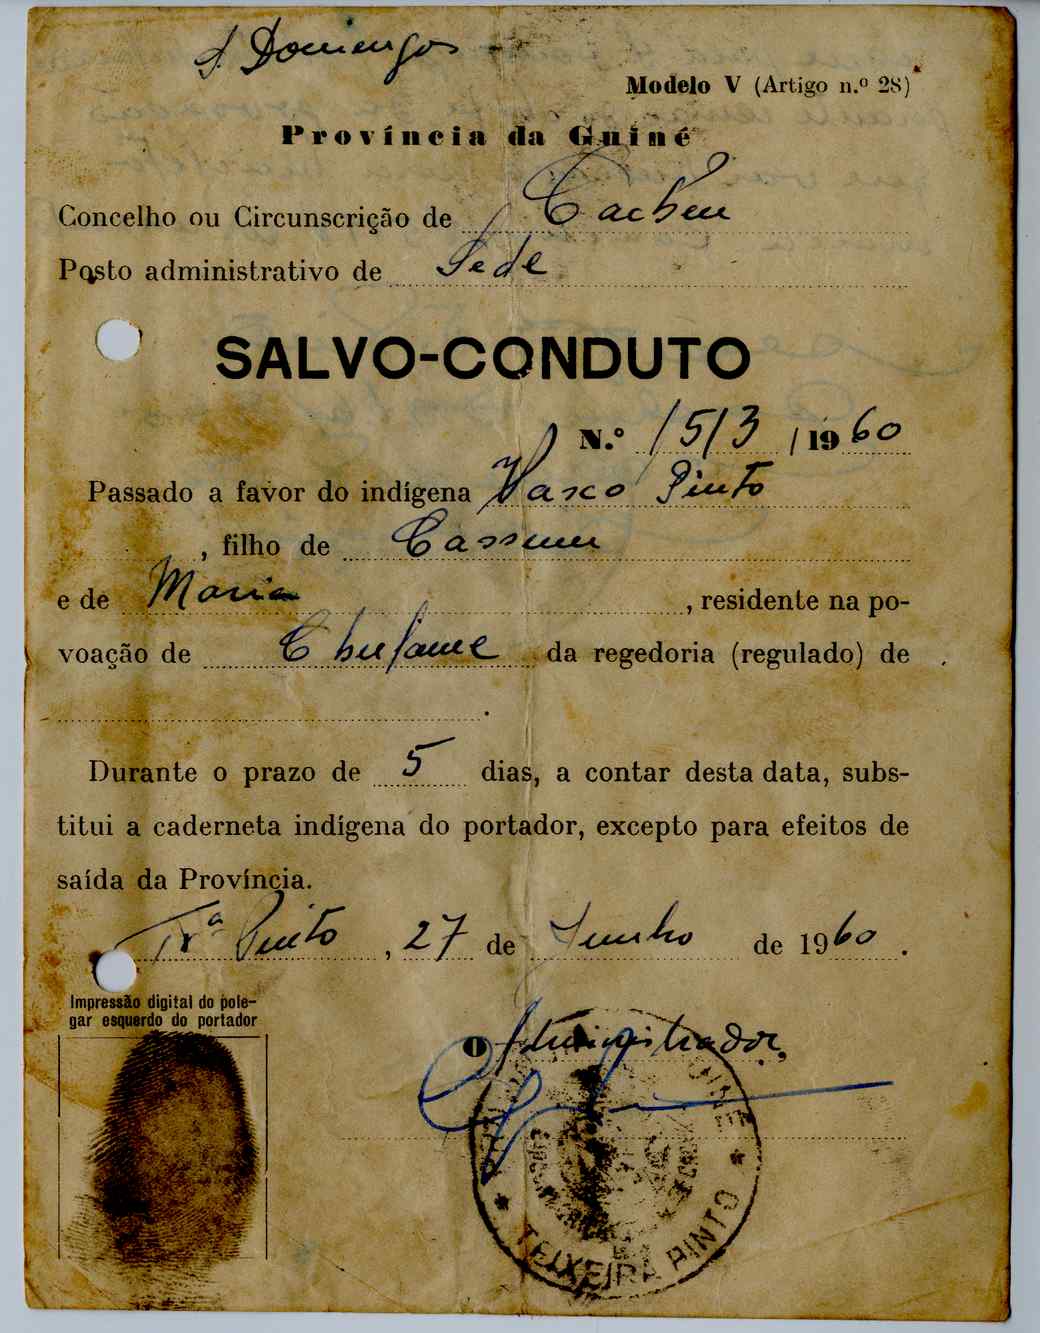 S. Domingos
Modelo V (Artigo n.º 28)
Província da Guiné
Concelho ou Circunscrição de Cacheu
Posto administrativo de Sede
SALVO-CONDUTO
N.º 1513 /1960
Passado a favor do indígena Vasco Pinto
, filho de Cassumu
e de Maria, residente na po-
voação de da regedoria (regulado) de
.
Durante o prazo de 5 dias, a contar desta data, subs-
titui a caderneta indígena do portador, excepto para efeitos de
saída da Província.
Trª Pinto, 27 de Junho de 1960.
Impressão digital do pole-
gar esquerdo do portador
O Administrador,
GUINÉ
TEIXEIRA PINTO